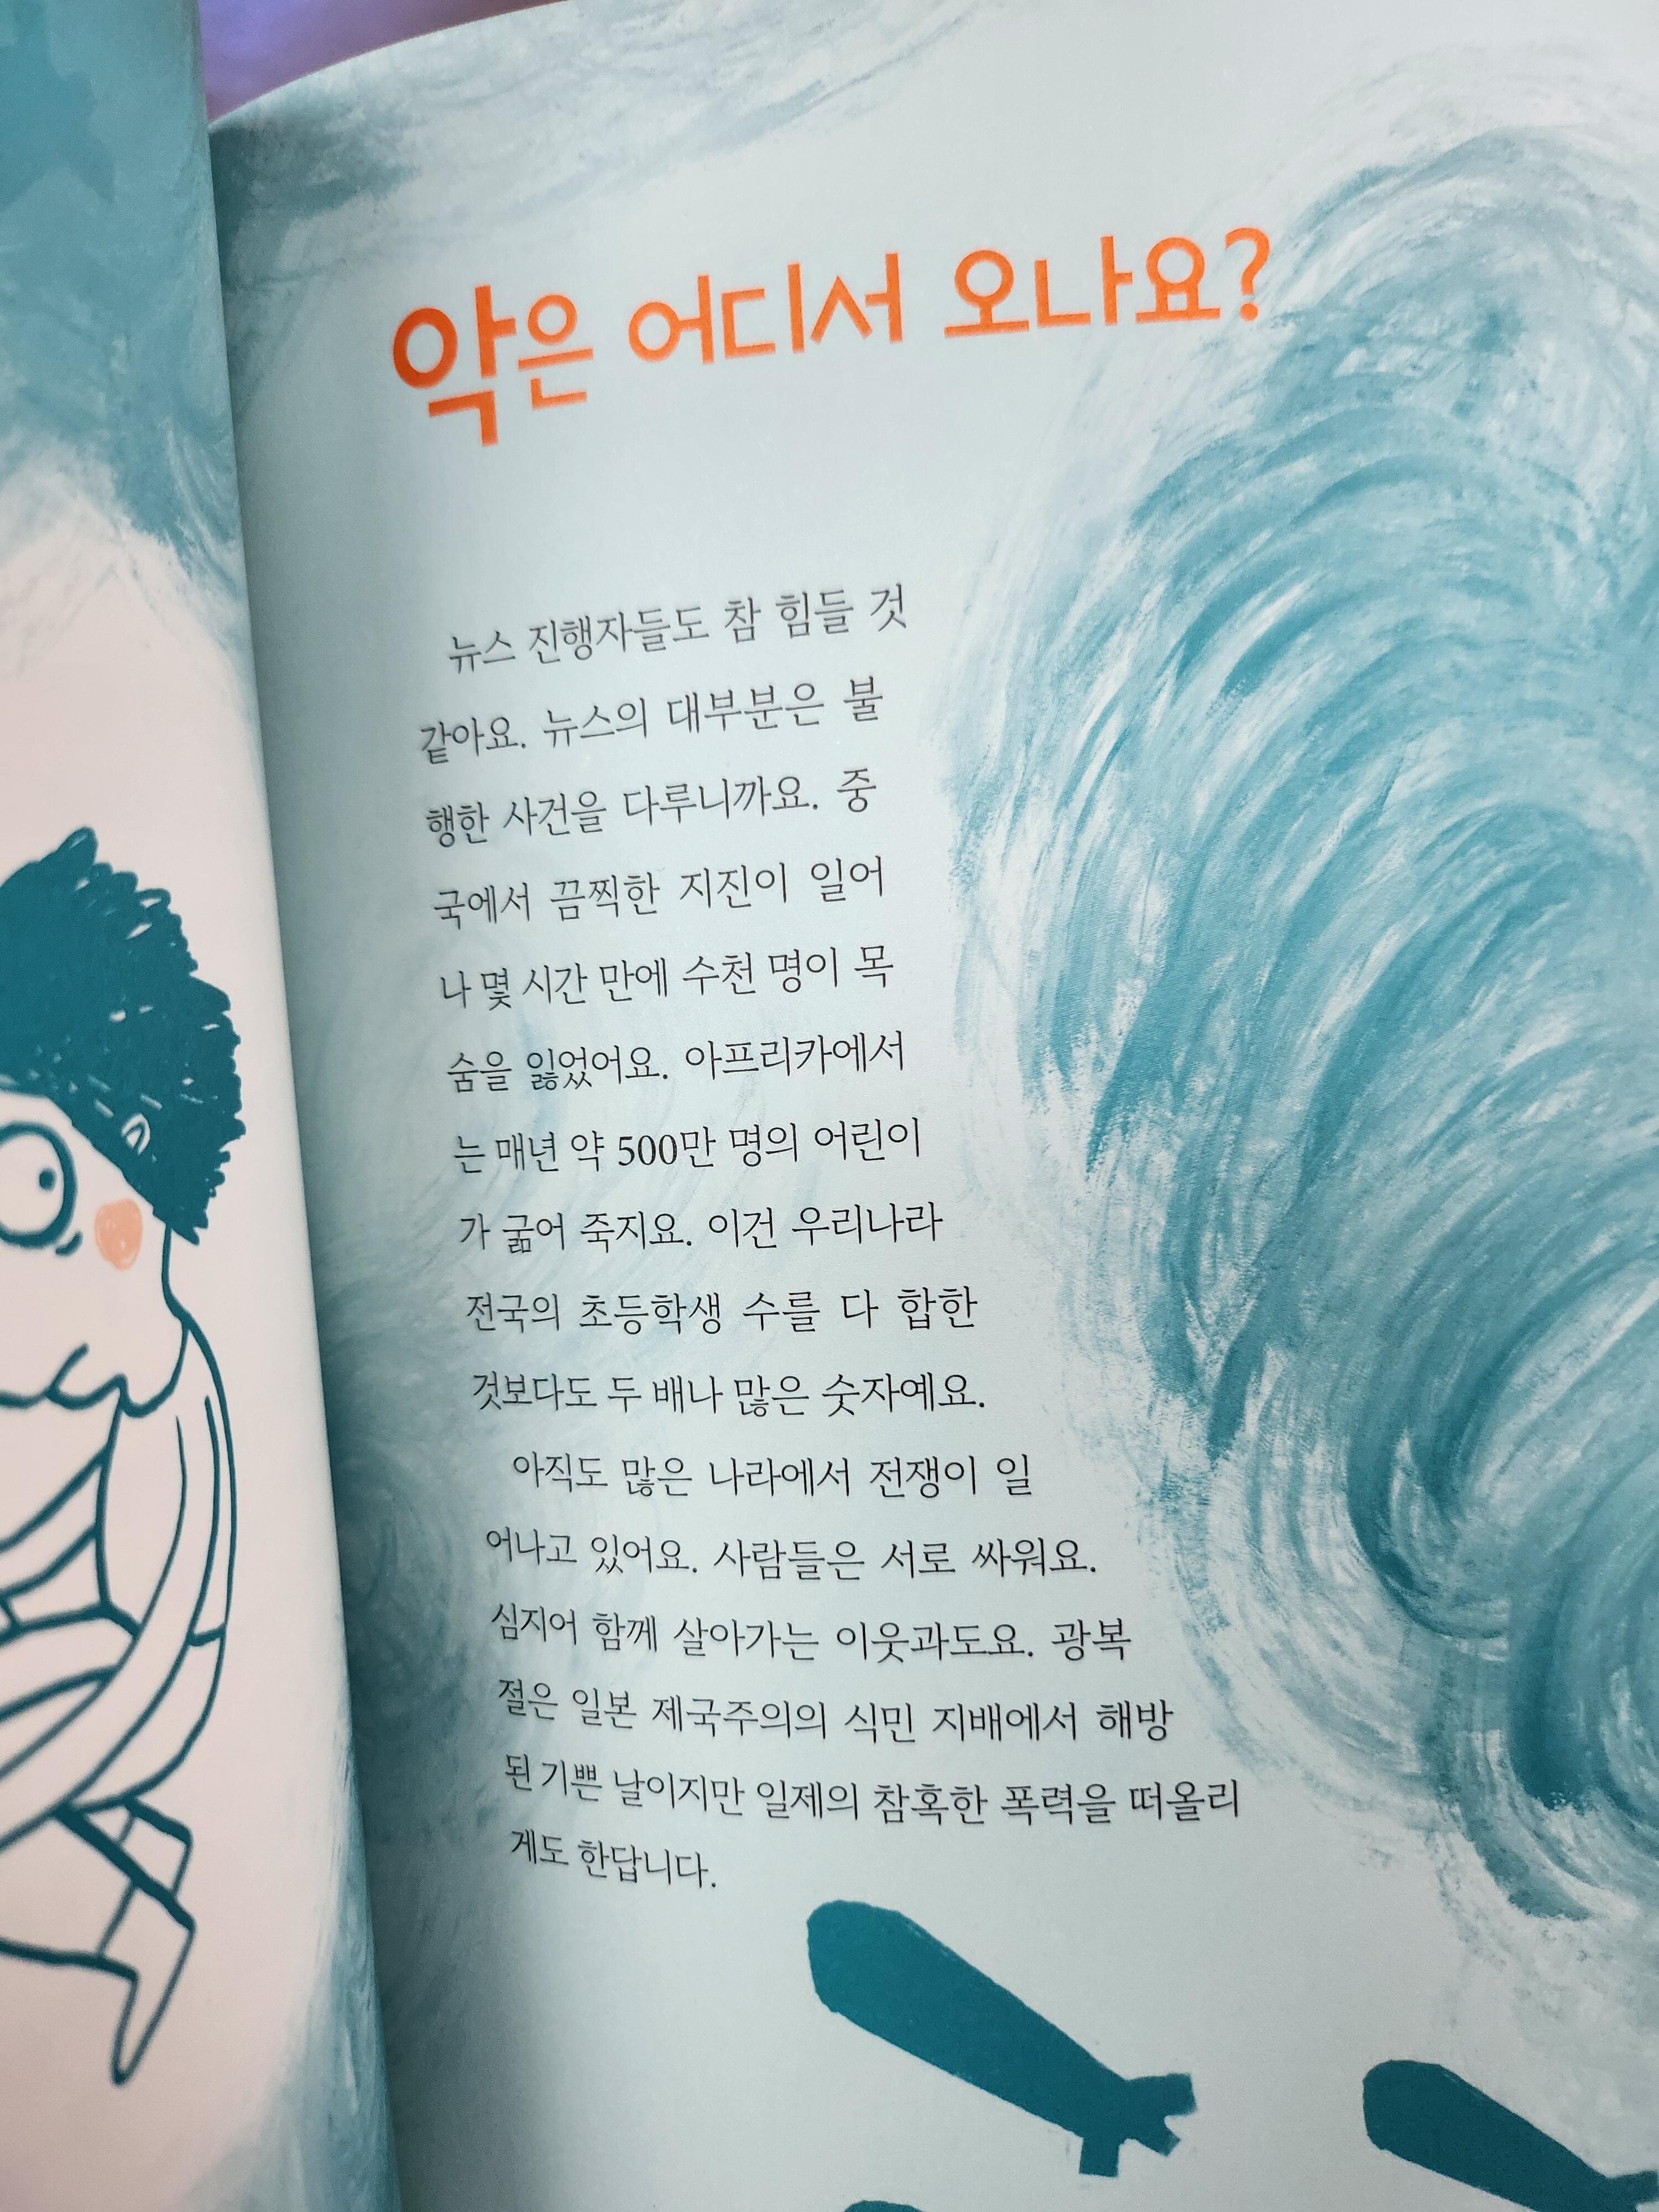 악은 어디서 오나요?
뉴스 진행자들도 참 힘들 것
같아요. 뉴스의 대부분은 불
행한 사건을 다루니까요. 중
국에서 끔찍한 지진이 일어
나 몇 시간 만에 수천 명이 목
숨을 잃었어요. 아프리카에서
는 매년 약 500만 명의 어린이
가 굶어 죽지요. 이건 우리나라
전국의 초등학생 수를 다 합한
것보다도 두 배나 많은 숫자예요.
아직도 많은 나라에서 전쟁이 일
어나고 있어요. 사람들은 서로 싸워요.
심지어 함께 살아가는 이웃과도요. 광복
절은 일본 제국주의의 식민 지배에서 해방
된 기쁜 날이지만 일제의 참혹한 폭력을 떠올리
게도 한답니다.